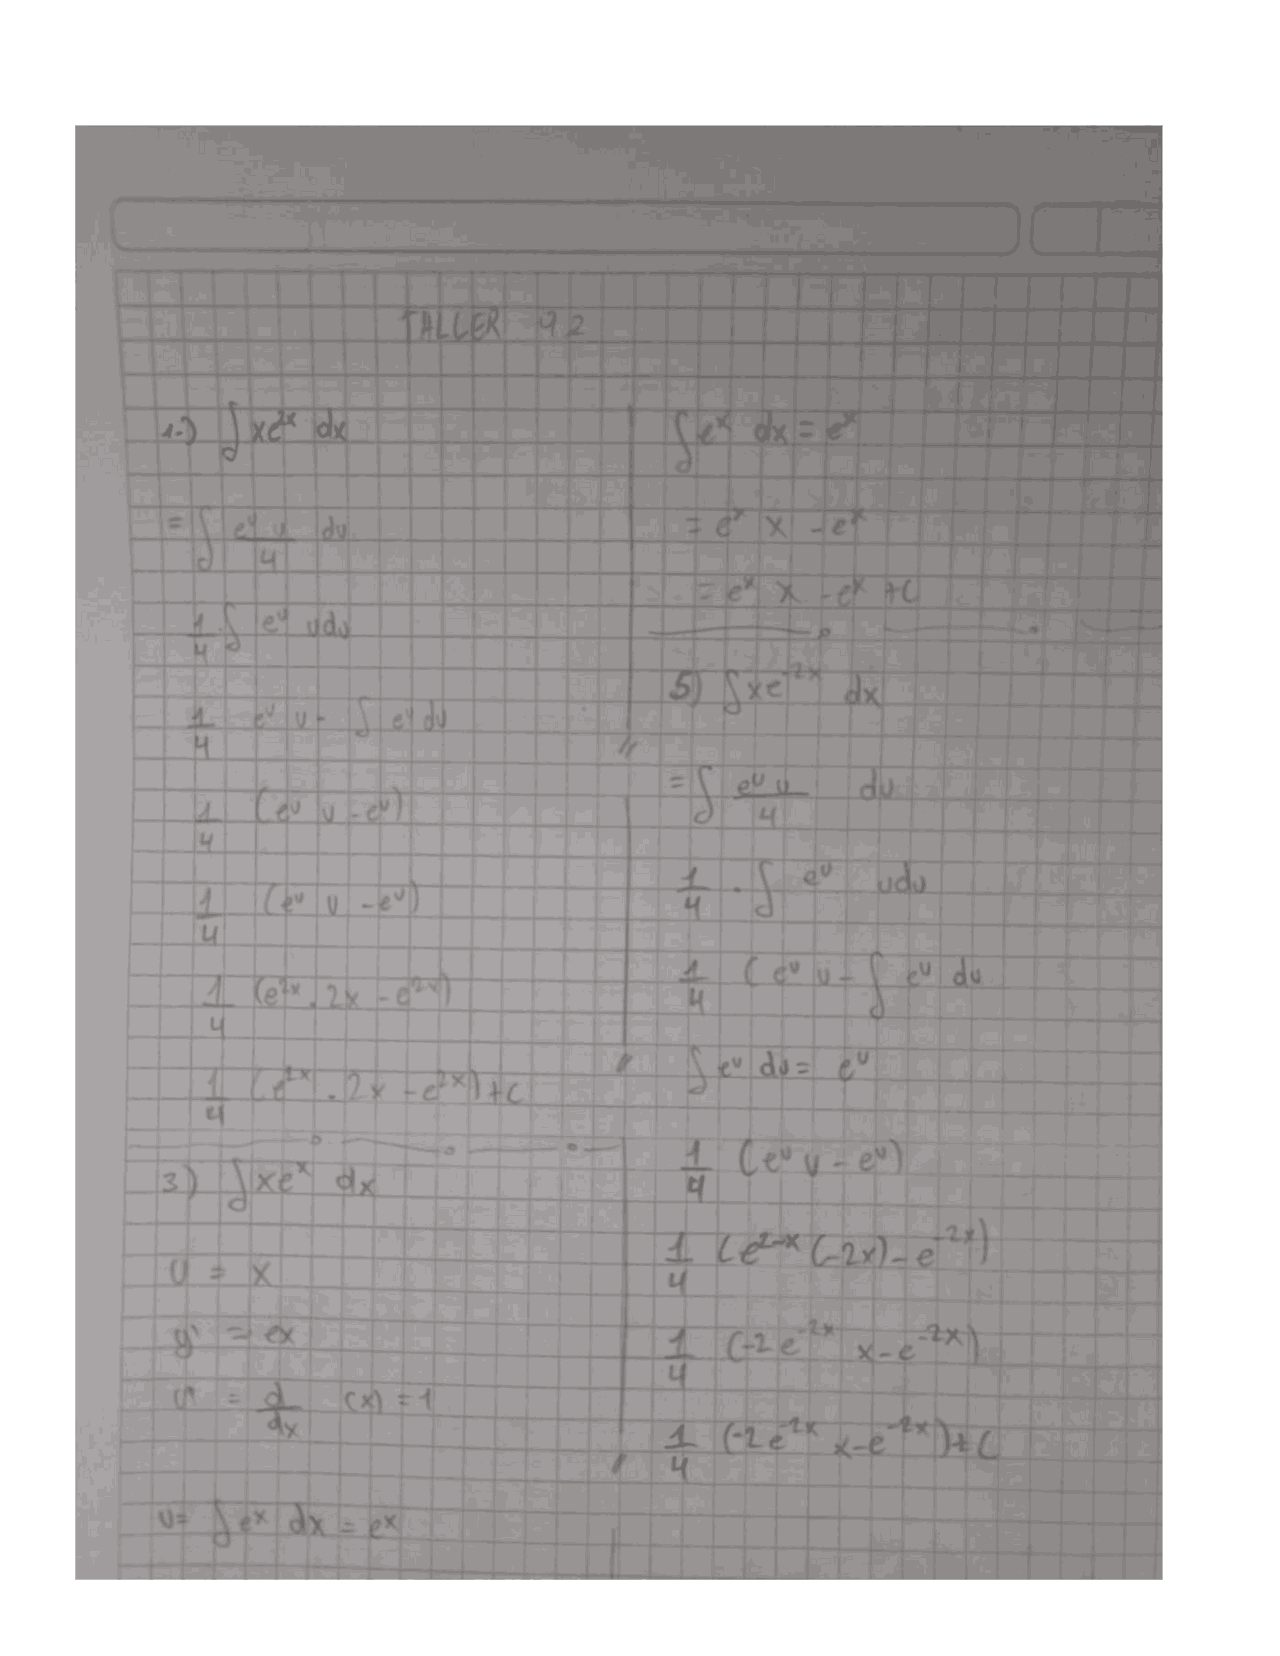 TALLER 92
1.-) ∫ xe^{2x} dx
= ∫ \frac{e^u u}{4} du
\frac{1}{4} ∫ e^u u du
\frac{1}{4} e^u u - ∫ e^u du
\frac{1}{4} (e^u u - e^u)
\frac{1}{4} (e^u u - e^u)
\frac{1}{4} (e^{2x} . 2x - e^{2x})
\frac{1}{4} (e^{2x} . 2x - e^{2x}) + C
3) ∫ xe^x dx
U = x
= ex
= \frac{d}{dx} (x) = 1
v = ∫ e^x dx = e^x
∫ e^x dx = e^x
= e^x x - e^x
= e^x x - e^x + C
5) ∫ xe^{-2x} dx
= ∫ \frac{e^u u}{4} du
\frac{1}{4} . ∫ e^u u du
\frac{1}{4} (e^u u - ∫ e^u du
∫ e^u du = e^u
\frac{1}{4} (e^u u - e^u)
\frac{1}{4} (e^{2-x} (-2x) - e^{-2x})
\frac{1}{4} (-2e^{-2x} x - e^{-2x})
\frac{1}{4} (-2e^{-2x} x - e^{-2x}) + C